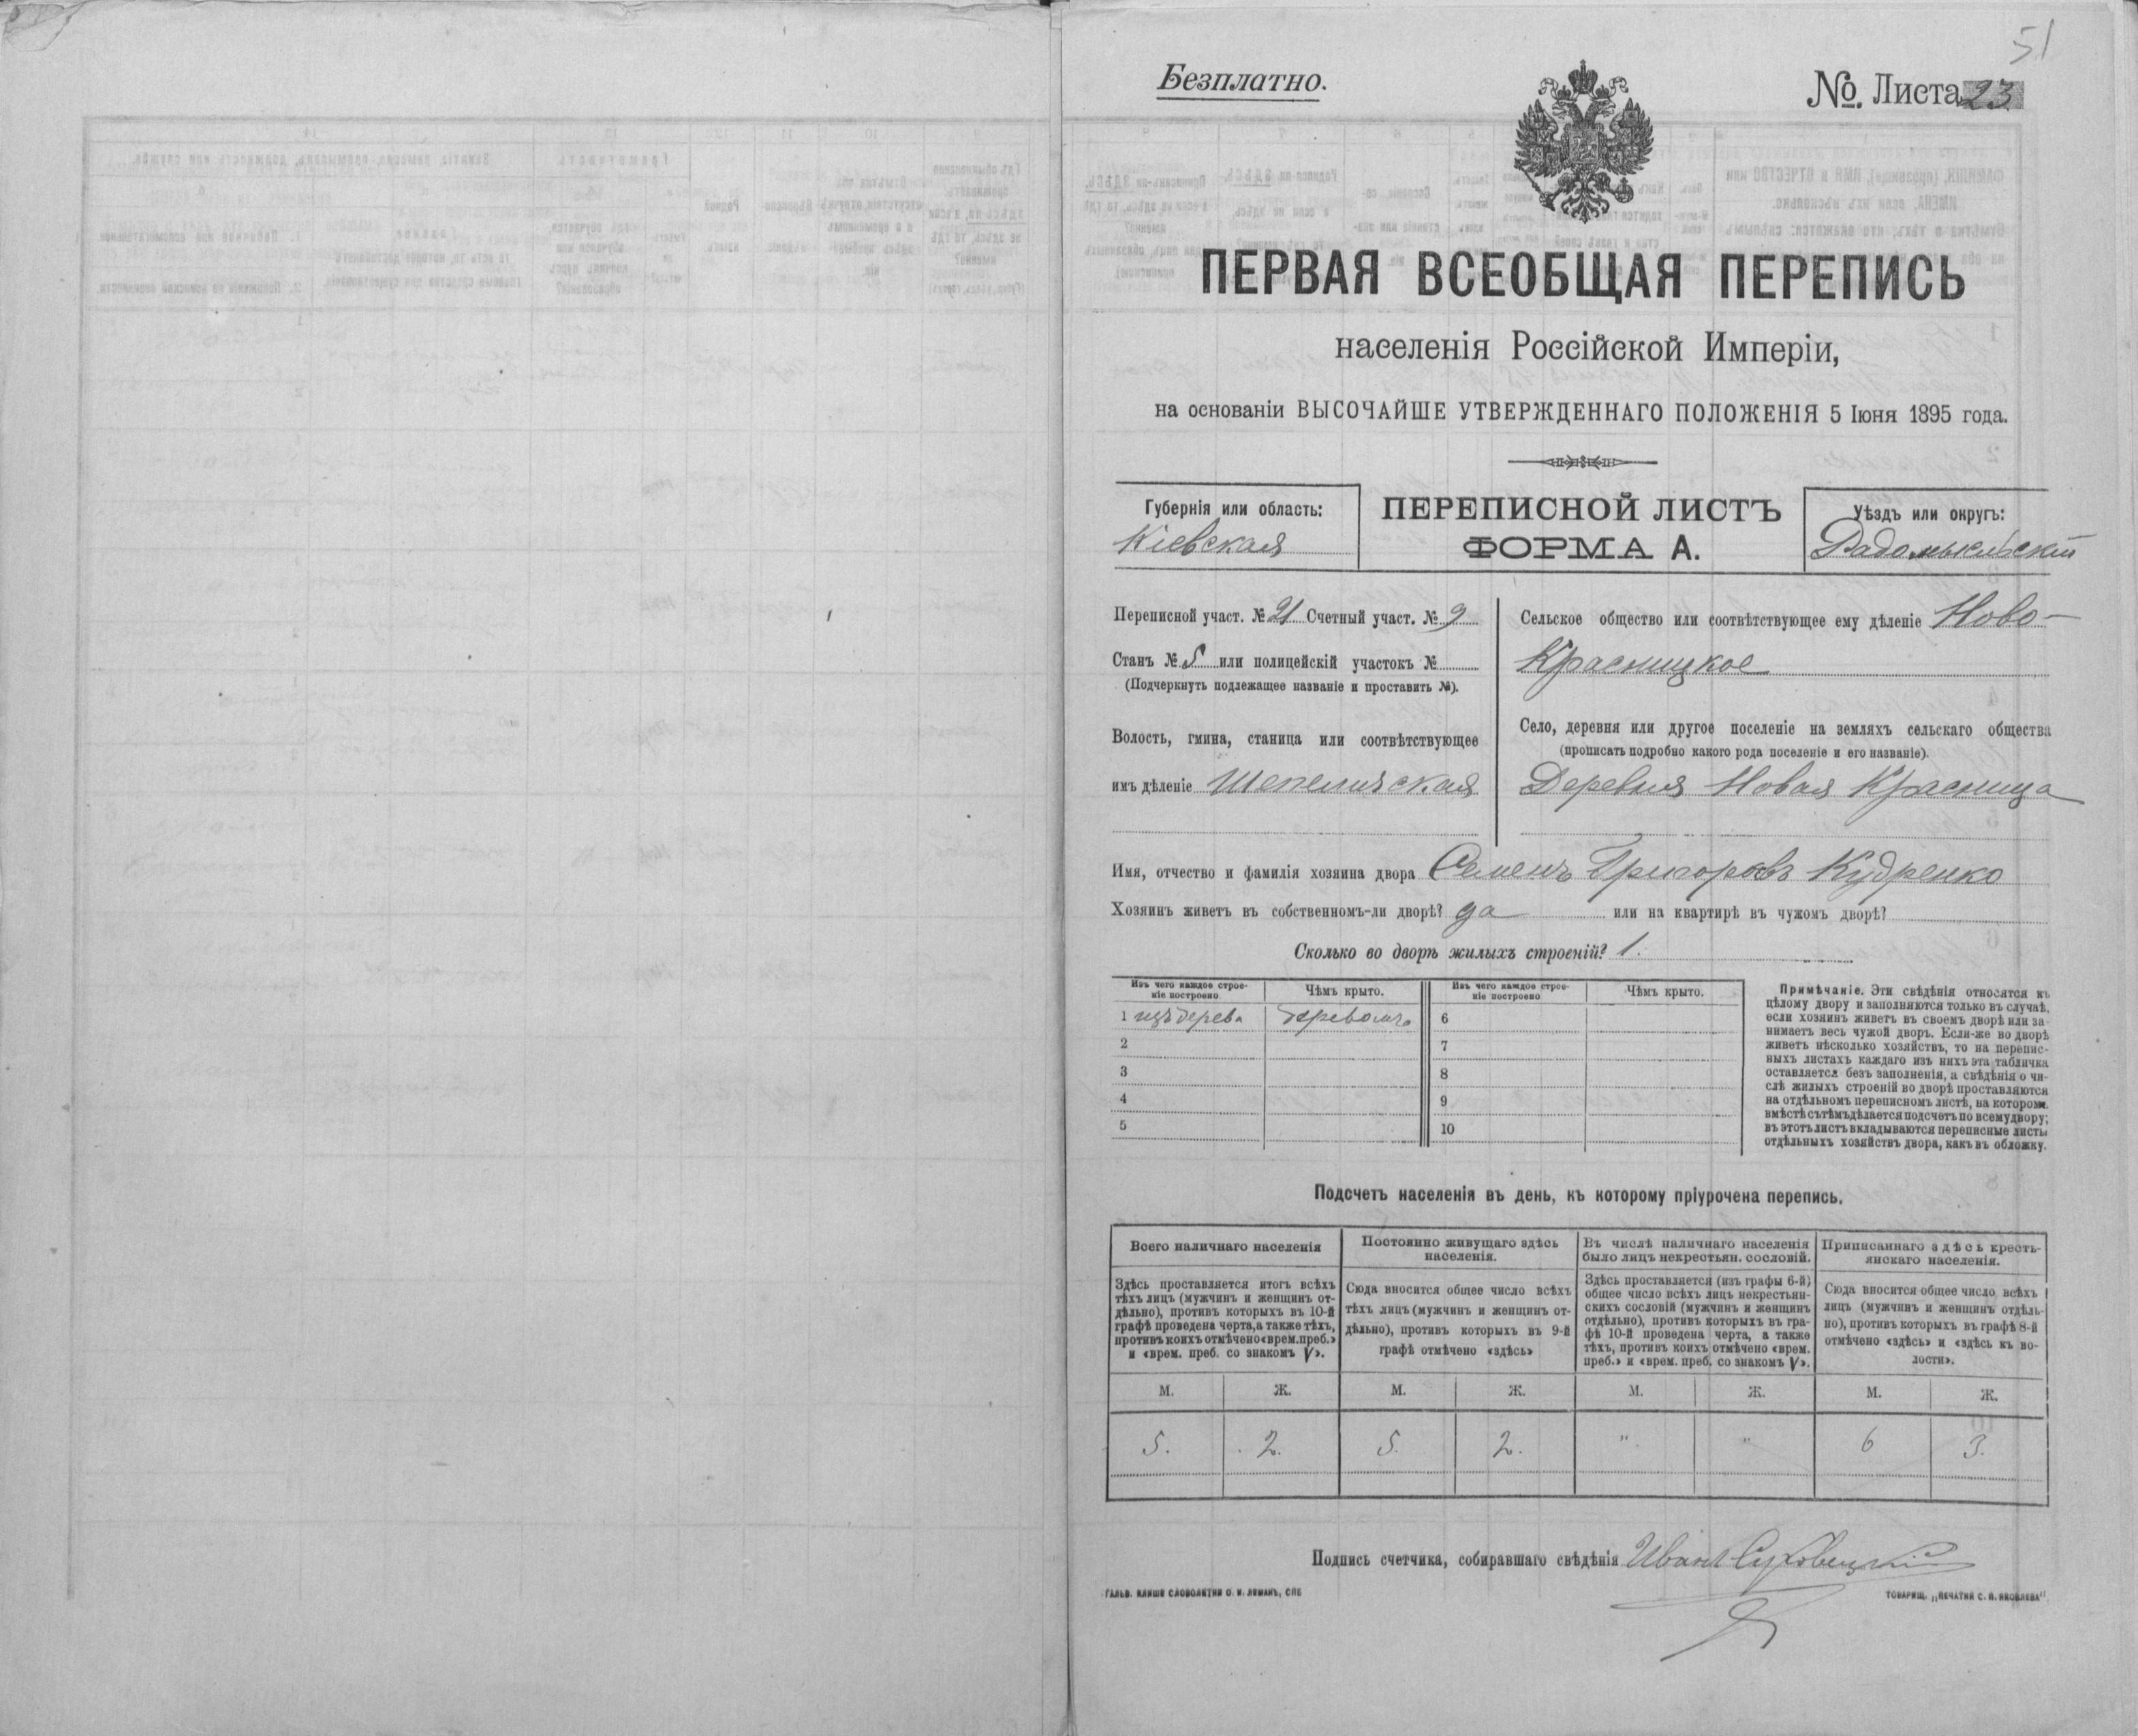 51
Безплатно.
№. Листа 23
ПЕРВАЯ ВСЕОБЩАЯ ПЕРЕПИСЬ
населенія Россійской Имперіи,
на основаніи ВЫСОЧАЙШЕ УТВЕРЖДЕННАГО ПОЛОЖЕНІЯ 5 Іюня 1895 года.
Губернія или область:
Кіевская
ПЕРЕПИСНОЙ ЛИСТЪ
ФОРМА А.
Уѣздъ или округъ:
Радомысльскій
Переписной участ. № 21 Счетный участ. № 9
Станъ № 5 или полицейскій участокъ №
(Подчеркнуть подлежащее названіе и проставить №).
Волость, гмина, станица или соотвѣтствующее
имъ дѣленіе Шепеличская
Сельское общество или соотвѣтствующее ему дѣленіе Ново-
Красницкое
Село, деревня или другое поселеніе на земляхъ сельскаго общества
(прописать подробно какого рода поселеніе и его названіе).
Деревня Новая Красница
Имя, отчество и фамилія хозяина двора Семенъ Григоровъ Кудренко
Хозяинъ живетъ въ собственномъ-ли дворѣ? да или на квартирѣ въ чужомъ дворѣ?
Сколько во дворѣ жилыхъ строеній? 1.
Изъ чего каждое строе-
ніе построено
Чѣмъ крыто.
Изъ чего каждое строе-
ніе построено
Чѣмъ крыто.
1 изъ дерева деревомъ 6
2 7
3 8
4 9
5 10
Примѣчаніе. Эти свѣдѣнія относятся къ
цѣлому двору и заполняются только въ случаѣ,
если хозяинъ живетъ въ своемъ дворѣ или за-
нимаетъ весь чужой дворъ. Если-же во дворѣ
живетъ нѣсколько хозяйствъ, то на перепис-
ныхъ листахъ каждаго изъ нихъ эта табличка
оставляется безъ заполненія, а свѣдѣнія о чи-
слѣ жилыхъ строеній во дворѣ проставляются
на отдѣльномъ переписномъ листѣ, на которомъ
вмѣстѣ съ тѣмъ дѣлается подсчетъ по всему двору;
въ этотъ листъ вкладываются переписные листы
отдѣльныхъ хозяйствъ двора, какъ въ обложку.
Подсчетъ населенія въ день, къ которому пріурочена перепись.
Всего наличнаго населенія
Здѣсь проставляется итогъ всѣхъ
тѣхъ лицъ (мужчинъ и женщинъ от-
дѣльно), противъ которыхъ въ 10-й
графѣ проведена черта, а также тѣхъ,
противъ коихъ отмѣчено «врем. преб.»
и «врем. преб. со знакомъ V».
Постоянно живущаго здѣсь
населенія.
Сюда вносится общее число всѣхъ
тѣхъ лицъ (мужчинъ и женщинъ от-
дѣльно), противъ которыхъ въ 9-й
графѣ отмѣчено «здѣсь»
Въ числѣ наличнаго населенія
было лицъ некрестьян. сословій.
Здѣсь проставляется (изъ графы 6-й)
общее число всѣхъ лицъ некрестьян-
скихъ сословій (мужчинъ и женщинъ
отдѣльно), противъ которыхъ въ гра-
фѣ 10-й проведена черта, а также
тѣхъ, противъ коихъ отмѣчено «врем.
преб.» и «врем. преб. со знакомъ V».
Приписаннаго здѣсь кресть-
янскаго населенія.
Сюда вносится общее число всѣхъ
лицъ (мужчинъ и женщинъ отдѣль-
но), противъ которыхъ въ графѣ 8-й
отмѣчено «здѣсь» и «здѣсь къ во-
лости».
М. Ж. М. Ж. М. Ж. М. Ж.
5. 2. 5. 2. " " 6 3.
Подпись счетчика, собиравшаго свѣдѣнія Иванъ Суховецкій
ГАЛЬВ. КЛИШЕ СЛОВОЛИТНИ О. И. ЛЕМАНЪ, СПБ
ТОВАРИЩ. „ПЕЧАТНЯ С. П. ЯКОВЛЕВА"